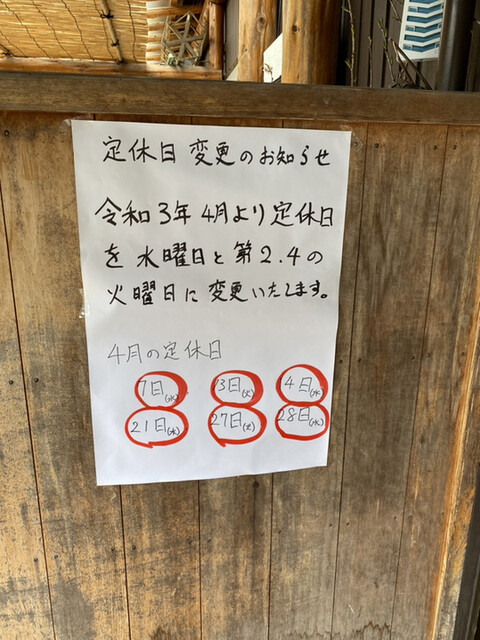 定休日変更のお知らせ
令和3年4月より定休日
を水曜日と第2.4の
火曜日に変更いたします。
4月の定休日
7日(水) 13日(火) 14日(水)
21日(水) 27日(火) 28日(水)